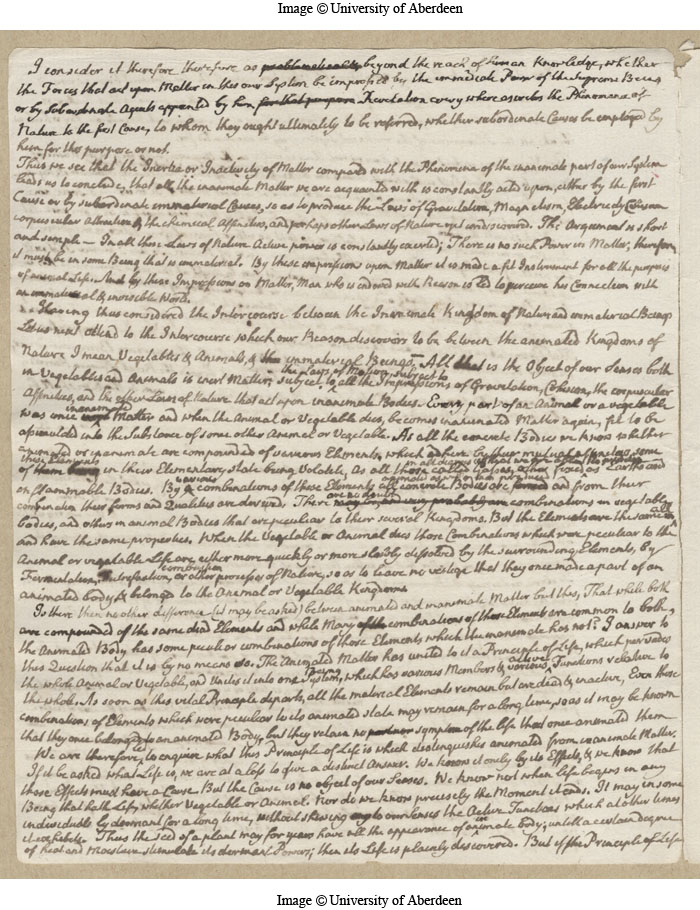 Image © University of Aberdeen
I consider it therefore therefore as problematical beyond the reach of human Knowledge, whether
the Forces that act upon Matter in this our System be impressed by the immediate Power of the supreme Being
or by Subordinate Agents appointed by him for that purpose Revelation every where ascribes the Phenomena of
Nature to the first Cause, to whom they ought ultimately to be referred, whether subordinate Causes be employed by
him for this purpose or not.
Thus we see that the Inertia or Inactivity of Matter compared with the Phenomena of the inanimate part of our System
leads us to conclude, that all the inanimate Matter we are acquainted with is constantly acted upon, either by the first
Cause or by subordinate immaterial Causes, so as to produce the Laws of Gravitation, Magnetism, Electricity Cohesion
corpuscular Attraction, & the chemical Affinities, and perhaps other Laws of Nature yet undiscovered. The Argument is short
and simple — In all those Laws of Nature Active power is constantly exerted; There is no such Power in Matter, therefore
it must be in some Being that is immaterial. By these impressions upon Matter it is made a fit Instrument for all the purposes
of animal Life. And by these Impressions on Matter, Man who is endowed with Reason is led to perceive his Connection with
an immaterial & invisible World.
Having thus considered the Intercourse between the Inanimate Kingdom of Nature and immaterial Beings
Let us next attend to the Intercourse which our Reason discovers to be between the animated Kingdoms of
Nature I mean Vegetables & Animals, & the immaterial Beings. All that is the Object of our Senses both
the Laws of Motion, subject to
in Vegetables and Animals is inert Matter, subject to all the Impressions of Gravitation, Cohesion, the corpuscular
Affinities, and the other Laws of Nature that act upon inanimate Bodies. Every part of an Animal or a vegetable
inanimate
was once Matter and when the Animal or Vegetable dies, becomes inanimated Matter again, fit to be
assimulated into the Substance of some other Animal or Vegetable. As all the concrete Bodies we know whether
animated or inanimate are compounded of various Elements, which adhere by their mutual affinities some
these Elements
of them in their Elementary state being Volatile, as all those called Gases, other fixed as Earths and
inflammable Bodies. By combinations of those Elements all concrete Bodies are formed and from their
various
combination their forms and Qualities are derived. There are no doubt combinations in vegetable
bodies, and others in animal Bodies that are peculiar to their several Kingdoms. But the Elements are the same in all
and have the same properties. When the Vegetable or Animal dies those Combinations which were peculiar to the
Animal or vegetable Life are either more quickly or more slowly dissolved by the surrounding Elements, by
combustion
Fermentation, Putrefaction, or other processes of Nature, so as to leave no vestige that they once made a part of an
animated body & belonged to the Animal or Vegetable Kingdoms
Is there then no other difference (it may be asked) between animated and inanimate Matter but this, That while both
are compounded of the same dead Elements and while Many of the combinations of those Elements are common to both,
the Animated Body has some peculiar combinations of those Elements which the inanimate has not? I answer to
this Question that it is by no means so. The Animated Matter has united to it a Principle of Life, which pervades
the whole Animal or Vegetable, and Unites it into one System, which has various Members & various Functions relative to
Being
active
the whole. As soon as this vital Principle departs, all the material Elements remain but are dead & inactive, Even those
combinations of Elements which were peculiar to its animated state may remain for a long time, so as it may be known
that they once belonged to an animated Body, but they retain no symptom of the life that once animated them
We are therefore to enquire what this Principle of Life is which distinguishes animated from inanimate Matter.
If it be asked what Life is, we are at a loss to give a distinct Answer. We know it only by its Effects, & we know that
those Effects must have a Cause. But the Cause is no object of our Senses. We know not when life begins in any
Being that hath Life, whether Vegetable or Animal. Nor do we know precisely the Moment it ends. It may in some
individuals ly dormant for a long time, without shewing to our Senses the Active Functions which at other times
it exhibits. Thus the seed of a plant may for years have all the appearance of inanimate body; untill a certain degree
of Heat and Moisture stimulate its dormant Powers; then its Life is plainly discovered. But if the Principle of Life
Image © University of Aberdeen